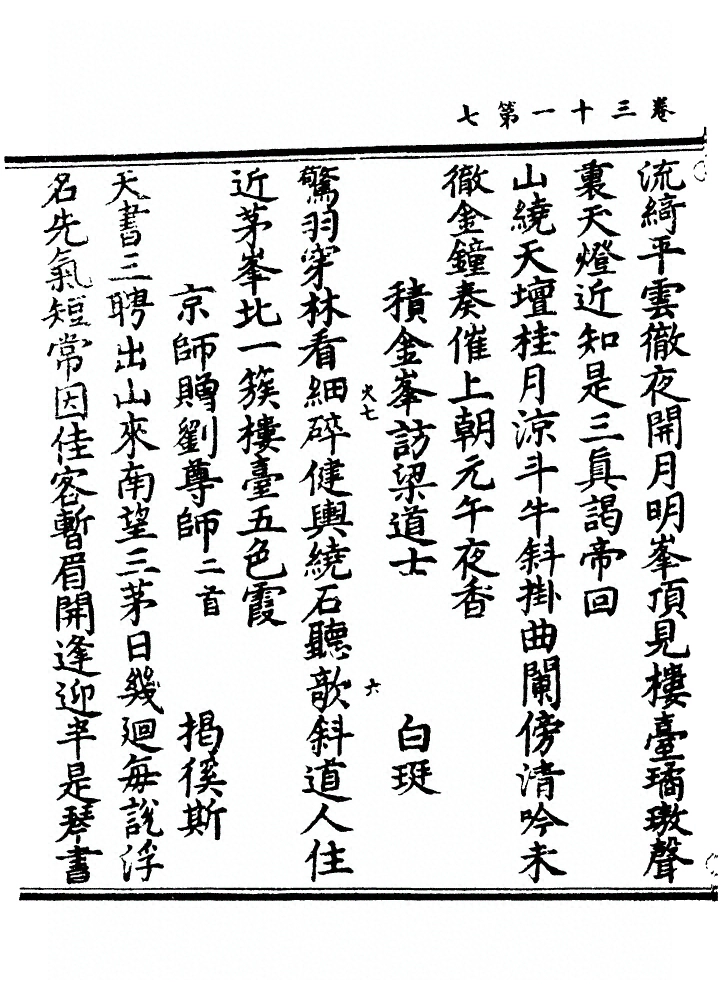 卷三十一第七
流綺平雲徹夜開月明峯頂見樓臺璚璈聲
裏天燈近知是三眞謁帝回
山繞天壇桂月涼斗牛斜掛曲闌傍清吟未
徹金鐘奏催上朝元午夜香
積金峯訪梁道士 白珽
七 六
驚羽穿林看細碎健輿繞石聽欹斜道人住
近茅峯北一簇樓臺五色霞
京師贈劉尊師二首 揭徯斯
天書三聘出山來南望三茅日幾廻每說浮
名先氣短常因佳客暫眉開逢迎半是琴書